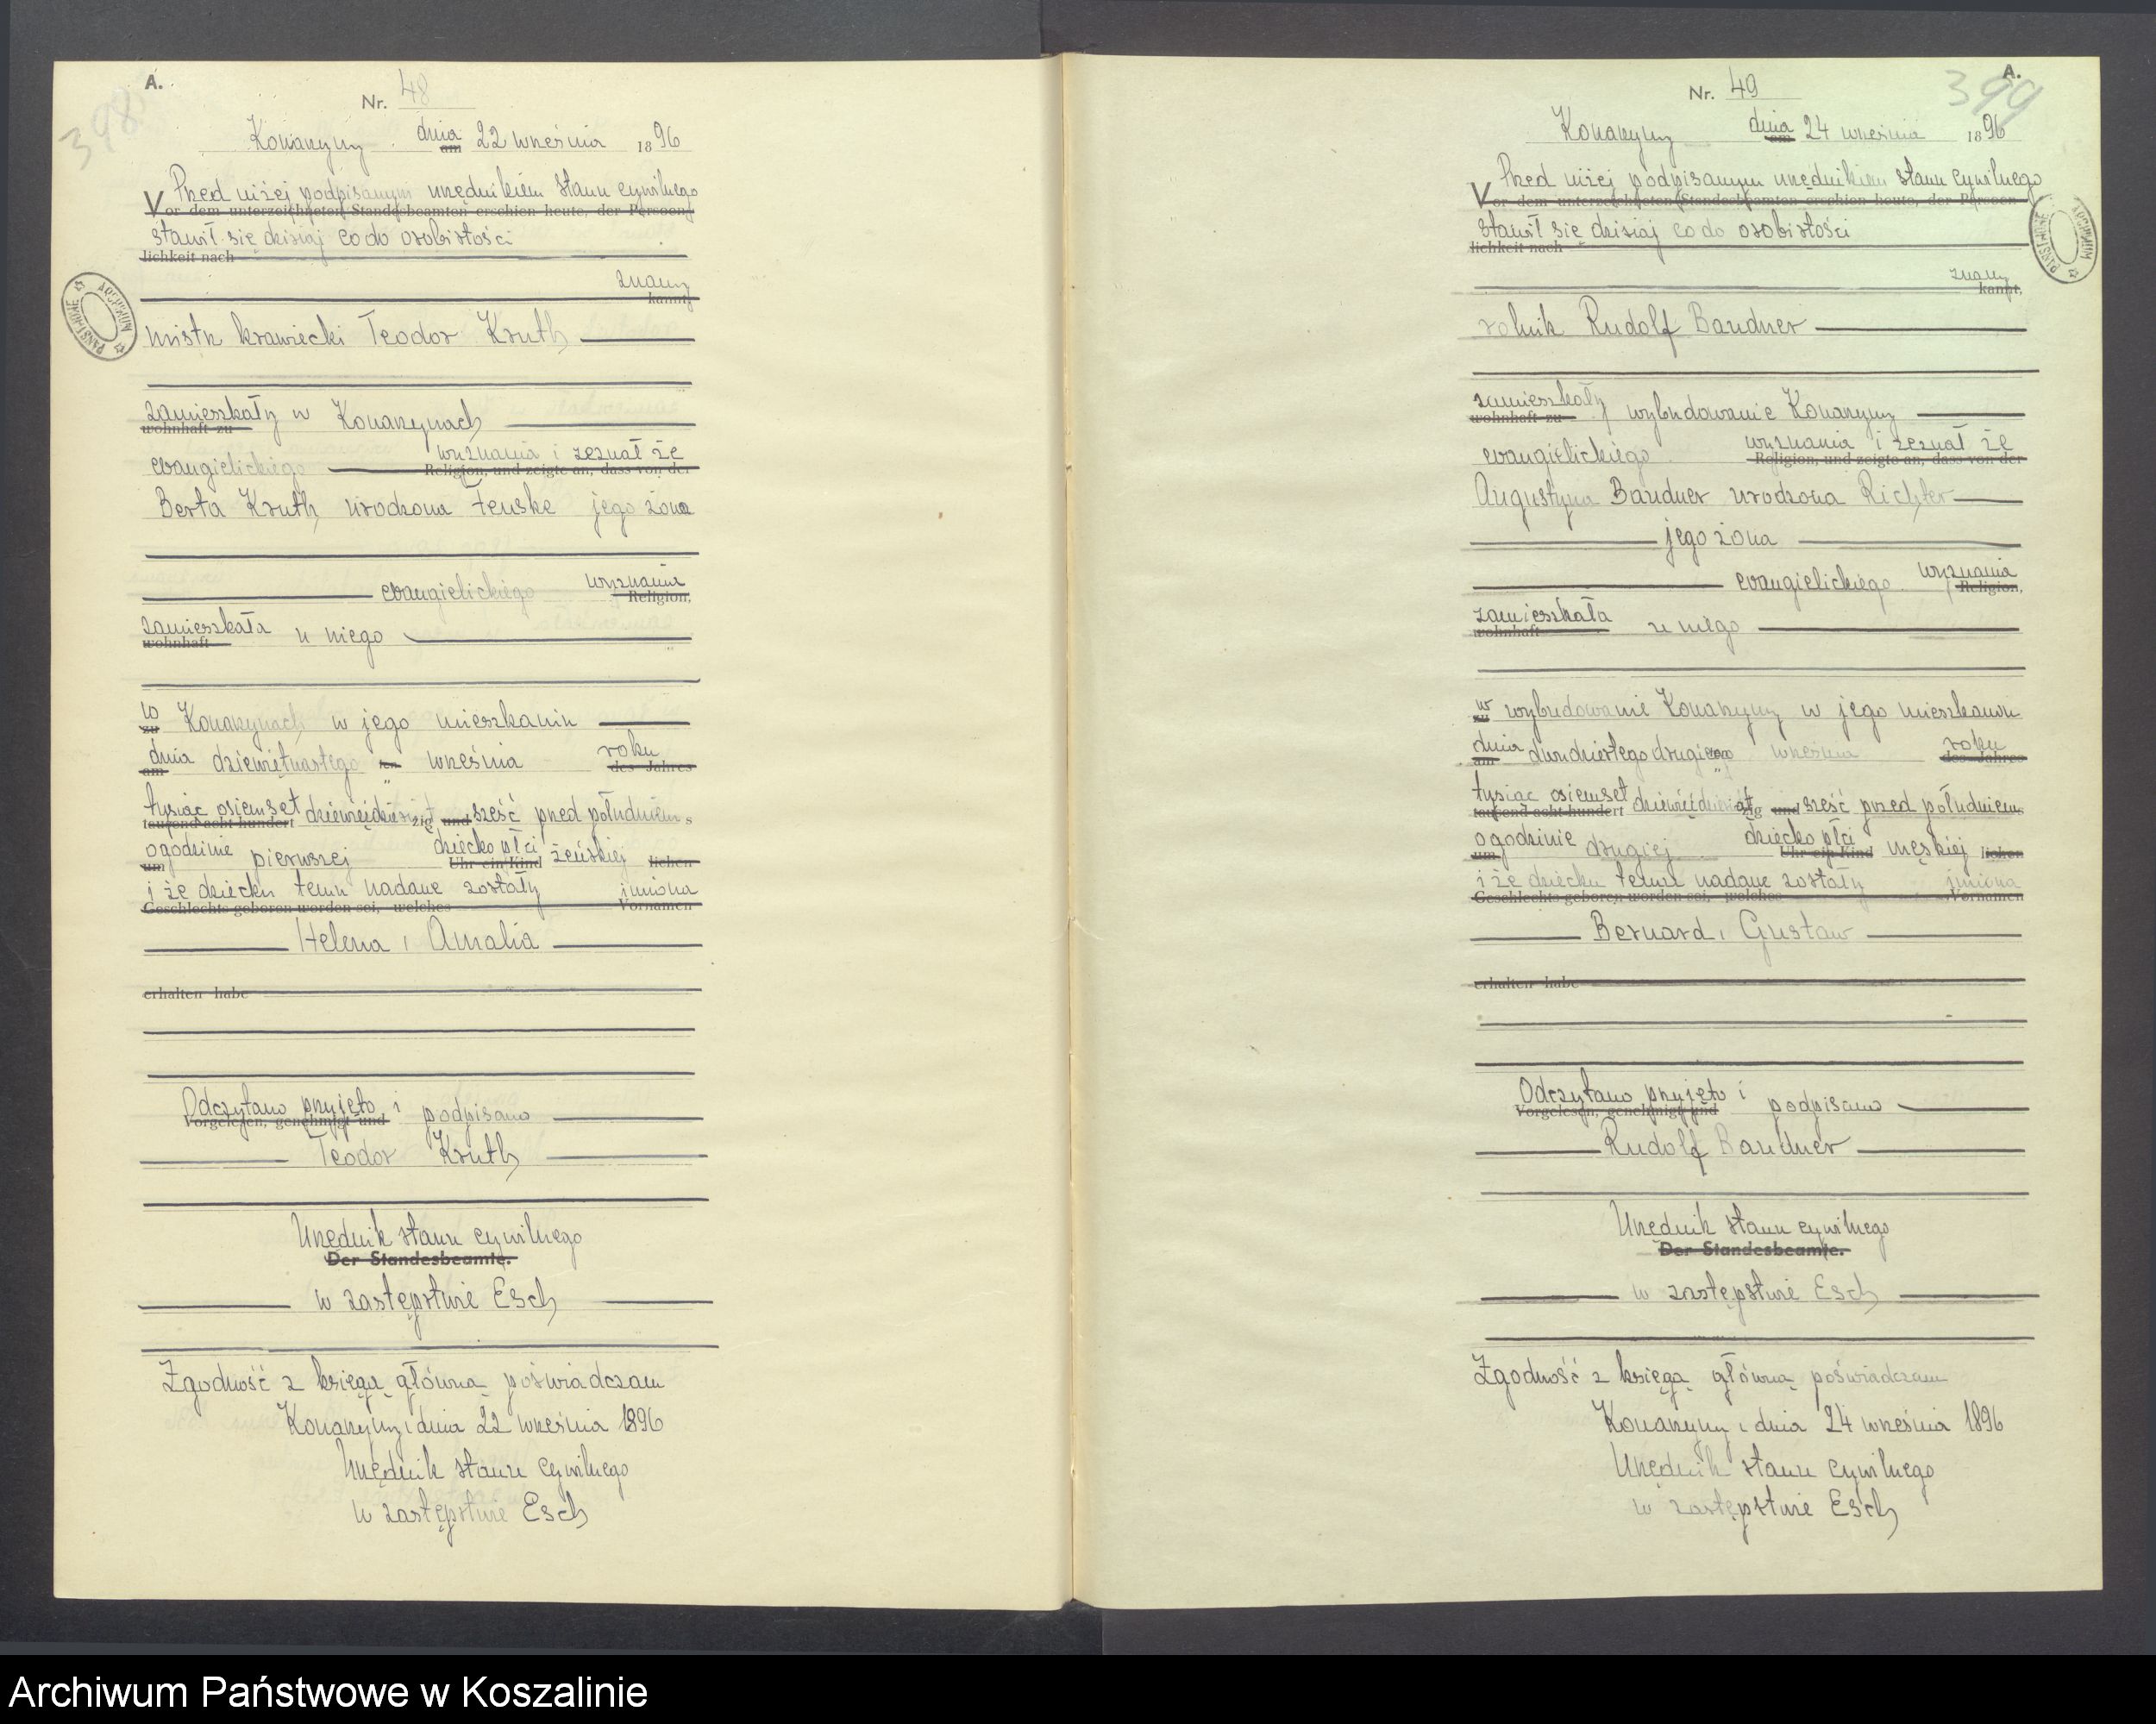 A.
398
Nr. 48
Konarzyny dnia am 22 września 1896
Przed niżej podpisanym urzędnikiem stanu cywilnego
Vor dem unterzeichneten Standesbeamten erschien heute, der Persoen-
stawił się dzisiaj co do osobistości
lichkeit nach
znany
kannt,
mistrz krawiecki Teodor Kruth
zamieszkały w Konarzynach
wohnhaft zu
evangielickiego wyznania i zeznał że
Religion, und zeigte an, dass von der
Berta Kruth urodzona jego żona
evangielickiego wyznania
Religion,
zamieszkała u niego
wohnhaft
w Konarzynach w jego mieszkaniu
zu
dnia dziewiętnastego ten września roku
am des Jahres
tysiąc osiemset dziewięćdziesiąt sześć przed południem
tausend acht hundert zig und s
o godzinie pierwszej dziecko płci żeńskiej
um Uhr ein Kind lichen
i że dziecku temu nadane zostały imiona
Geschlechts geboren worden sei, welches Vornamen
Helena, Amalia
erhalten habe
Odczytano przyjęto i podpisano
Vorgelesen, genehmigt und
Teodor Kruth
Urzędnik stanu cywilnego
Der Standesbeamte.
w zastępstwie Esch
Zgodność z księgą główną poświadczam
Konarzyny, dnia 22 września 1896
Urzędnik stanu cywilnego
w zastępstwie Esch
ARCHIWUM PAŃSTWOWE
A.
399
Nr. 49
Konarzyny dnia am 24 września 1896
Przed niżej podpisanym urzędnikiem stanu cywilnego
Vor dem unterzeichneten Standesbeamten erschien heute, der Persoen-
stawił się dzisiaj co do osobistości
lichkeit nach
znany
kannt,
rolnik Rudolf Baudner
zamieszkały wybudowanie Konarzyny
wohnhaft zu
evangielickiego wyznania i zeznał że
Religion, und zeigte an, dass von der
Augustyna Baudner urodzona Richter
jego żona
evangielickiego wyznania
Religion,
zamieszkała u niego
wohnhaft
w wybudowanie Konarzyny w jego mieszkaniu
zu
dnia dwudziestego drugiego września roku
am des Jahres
tysiąc osiemset dziewięćdziesiąt sześć przed południem
tausend acht hundert zig und s
o godzinie drugiej dziecko płci męskiej
um Uhr ein Kind lichen
i że dziecku temu nadane zostały imiona
Geschlechts geboren worden sei, welches Vornamen
Bernard, Gustaw
erhalten habe
Odczytano przyjęto i podpisano
Vorgelesen, genehmigt und
Rudolf Baudner
Urzędnik stanu cywilnego
Der Standesbeamte.
w zastępstwie Esch
Zgodność z księgą główną poświadczam
Konarzyny, dnia 24 września 1896
Urzędnik stanu cywilnego
w zastępstwie Esch
ARCHIWUM PAŃSTWOWE
Archiwum Państwowe w Koszalinie